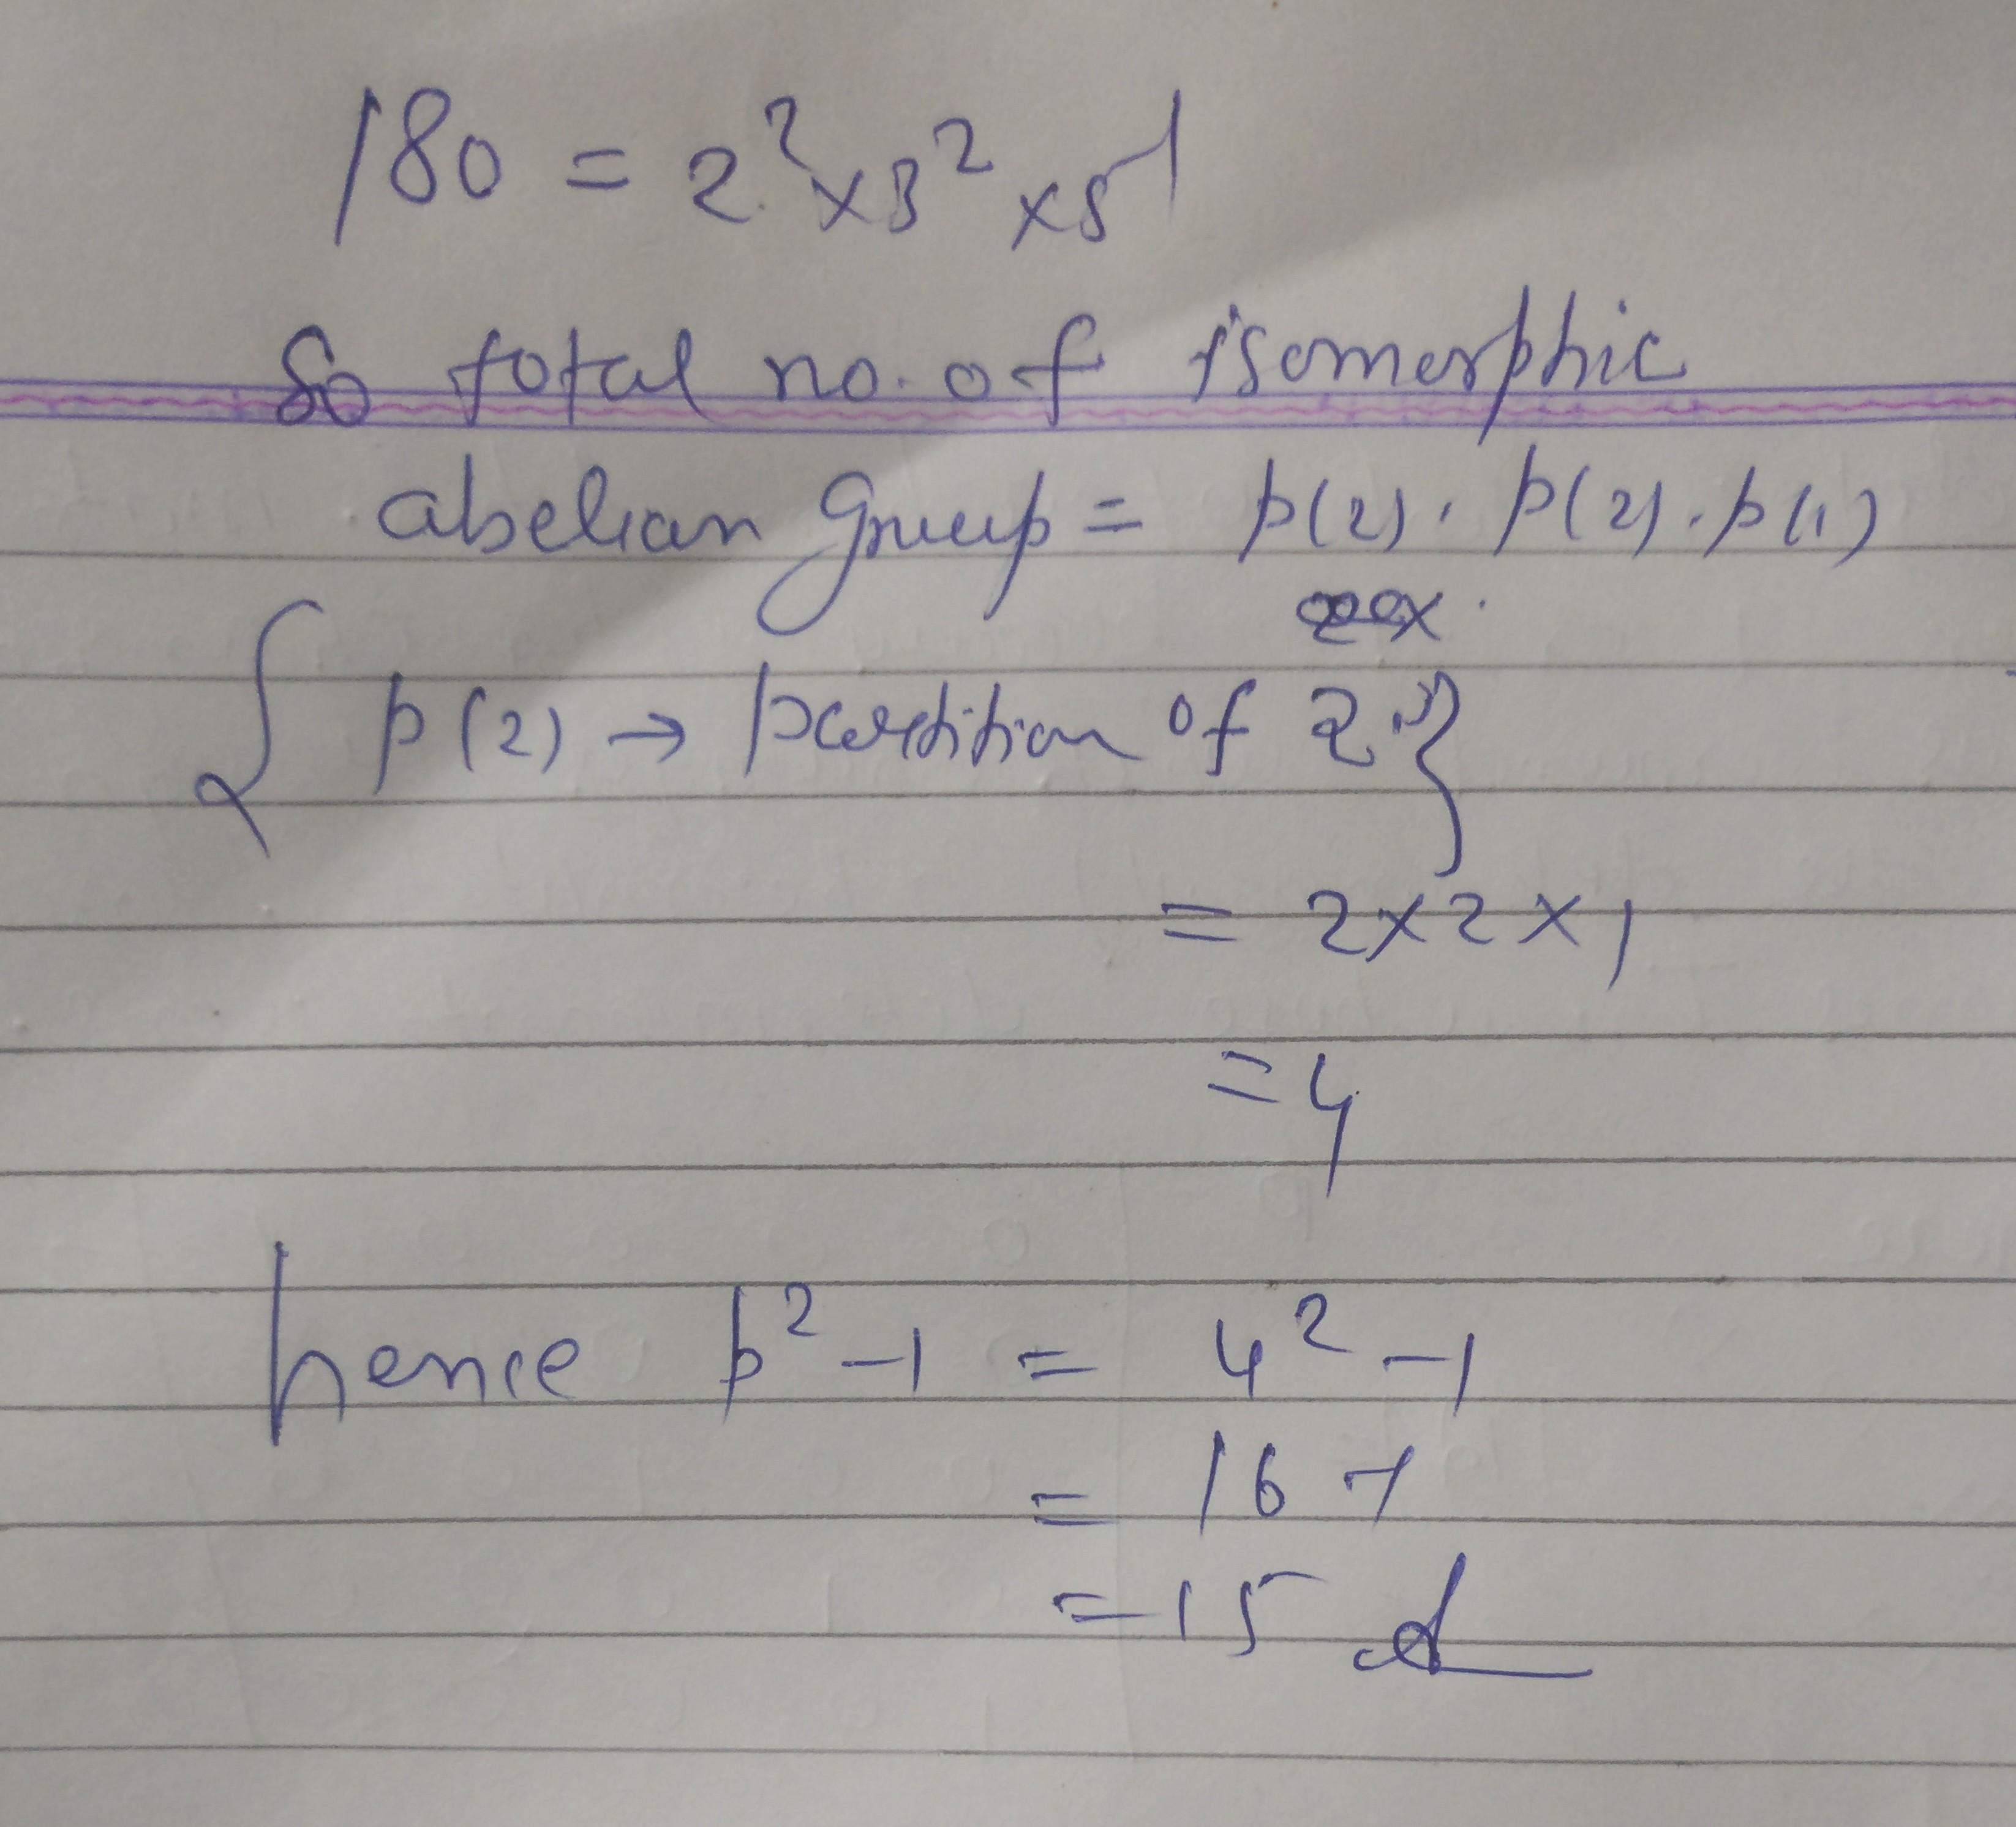 180 = 2² × 3² × 5¹
So total no. of isomorphic
abelian group = p(2) . p(2) . p(1)
{ p(2) → partition of 2 }
= 2 × 2 × 1
= 4
hence p² - 1 = 4² - 1
= 16 - 1
= 15